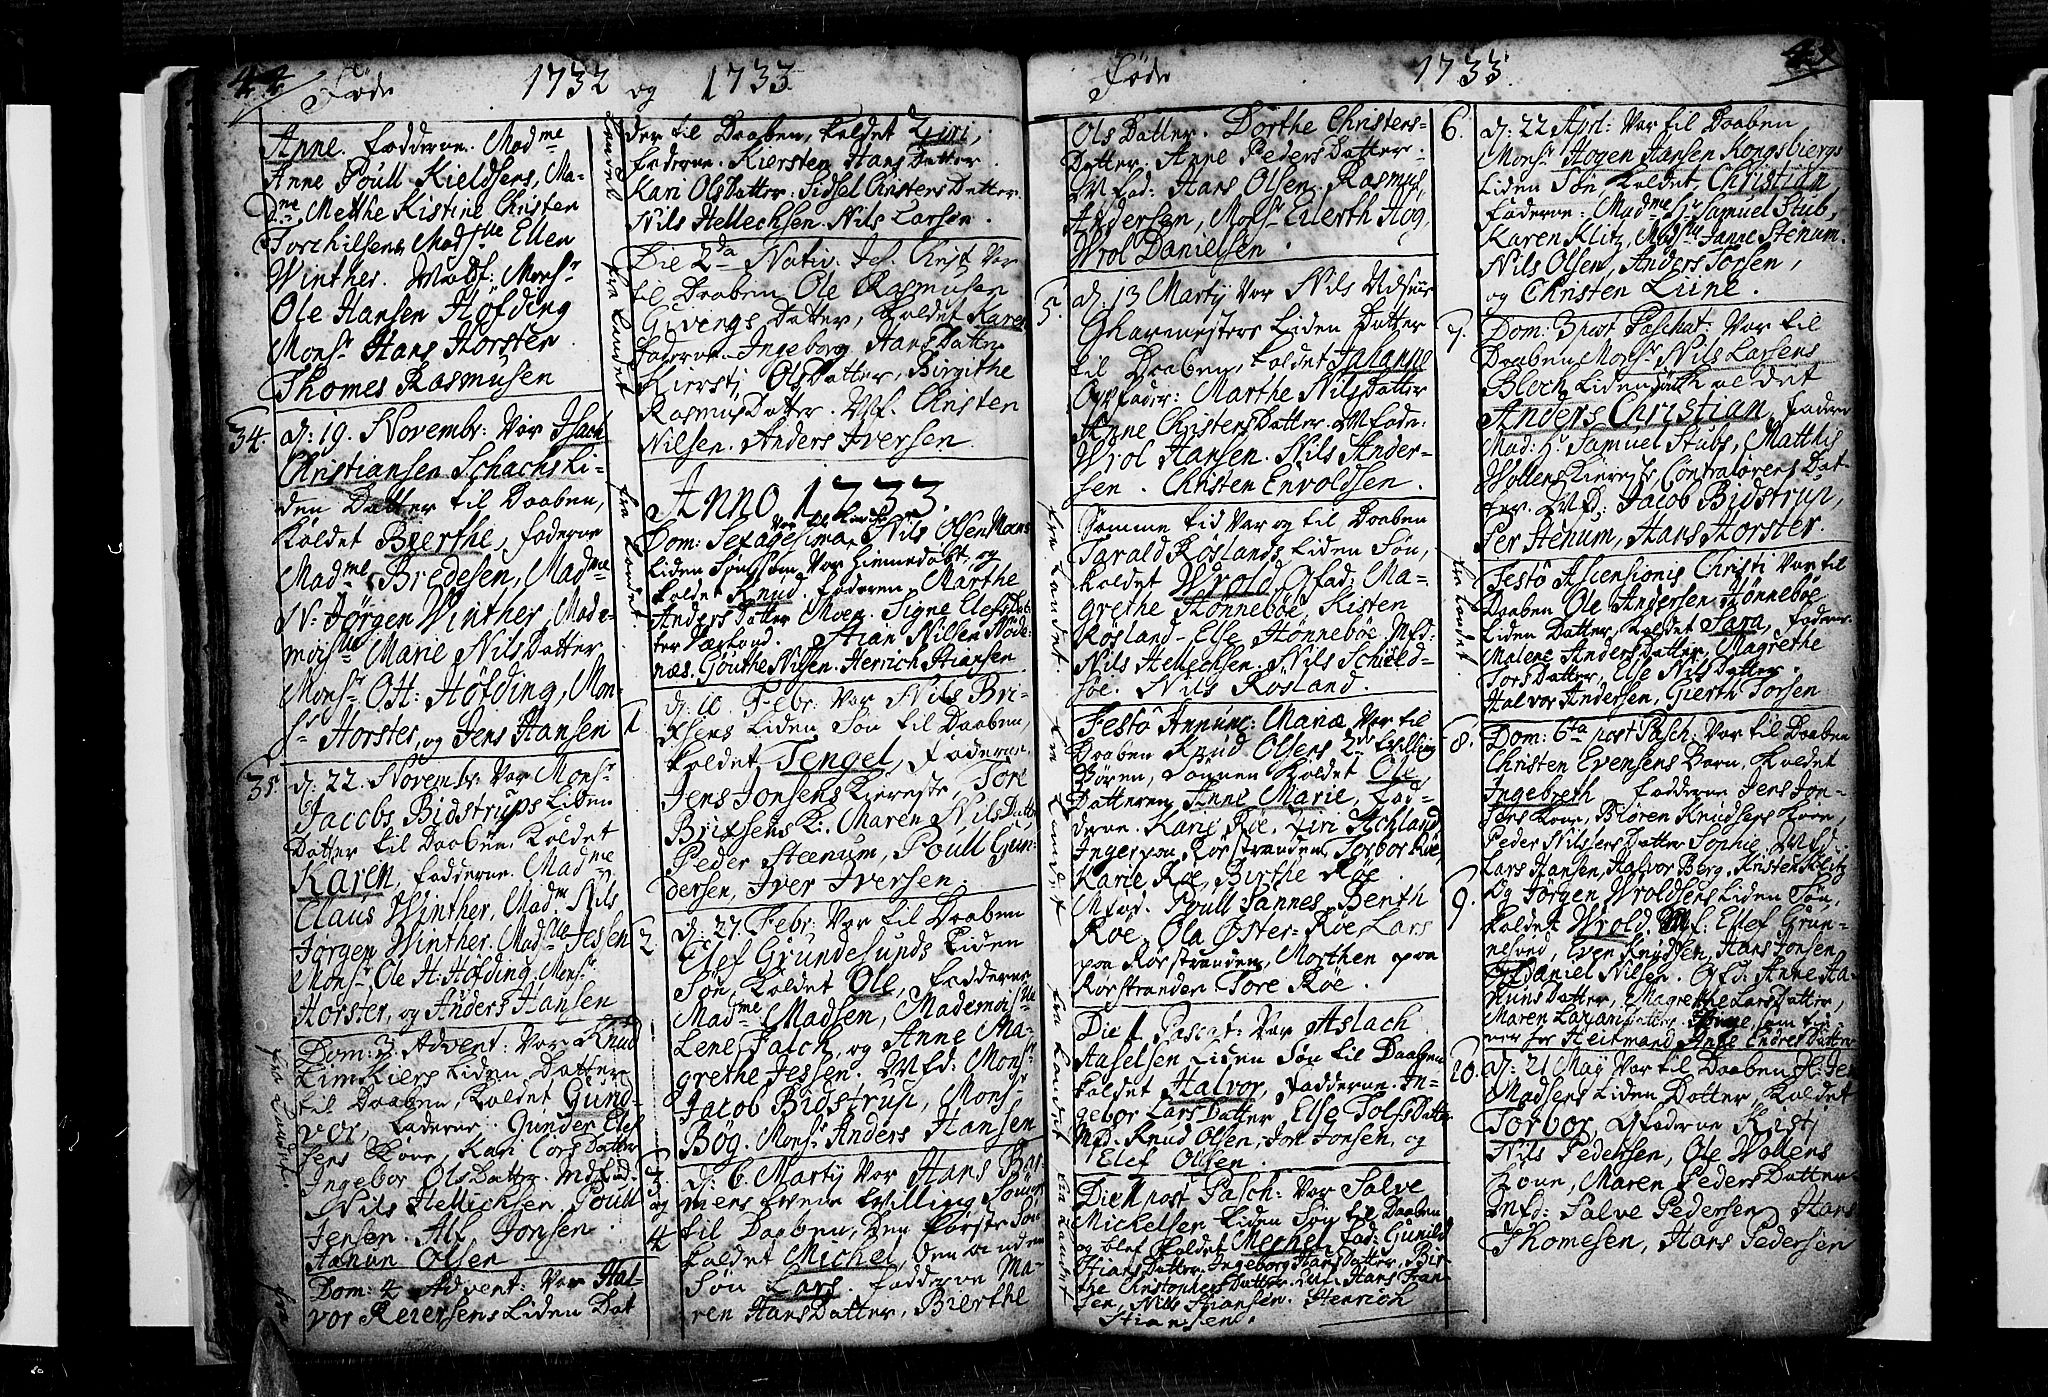 44 Føde 1732 og 1733
Anne. fadderne. Madme
Anne Poull Kieldsens, Ma-
Dme Mette Kistine Christen
Torchilsens Madslle Ellen
Winther. Madf: Monsr
Ole Hansen Höfding
Monsr Hans Horsten
Thomes Rasmusen
34. d: 19. Novembr: Var Isach
Christiansen Schachs Li-
den Datter til Daaben,
Kaldet Bierthe, fadderne
Madme Bredesen, Madme
N: Jörgen Winther, Made-
moislle Marie Nils Datter
Monsr Ott: Höfding, Mon-
sr Horster, og Jens Hansen
35. d: 22. Novembr: Var Monsr
Jacobs Bidstrups Liden
Datter til Daaben, Kaldet
Karen, fadderne. Madme
Claus Winther, Madm Nils
Jørgen Winther. Madslle Jessen
Monsr Ole H: Höfding, Monsr
Horster, og Anders Hansen
fra Landet.
Dom: 3 Advent: Var Knud
Limkiers Liden Datter
til Daaben, Kaldet Gund-
vor, faderne. Gunder Elef
sens Kone, Kari Lars Datter
Ingebor Ols Datter. Mdfad.
Nils Hellichsen. Poull
Jensen. Alf Jonsen
Hanun Olsen
Dom: 4 Advent: Var Hal
vor Reiersens Liden Dat
der til Daaben, kaldet Giri,
faderne. Kiersten Hans Datter
Kari Ols Datter. Sidsel Christens Datter
Nils Hellechsen. Nils Larsen.
fra Landet
Die 2da Nativ. Jes. Christ Var
til Daaben Ole Rasmusen
Givengs Datter, kaldet Karen
faderne. Ingeborg Hans Datter
Kiersti Ols Datter, Birgithe
Rasmus Datter. Mf. Christen
Nilsen. Anders Iversen.
Anno 1733.
fra Landet
Dom: Sexagesima Var til Kirche Nils Olsen Moens
Liden Søn som Var hiemmedøbt, og
kaldet Knud. faderen. Marthe
Anders Datter Moen. Signe Elefs Dat-
ter Nærland. Stian Nilsen Nöde-
næs. Gouthe Nilsen. Henrich Stiansen
1. d: 10. Febr: Var Nils Bri-
xsens Liden Søn til Daaben,
kaldet Tengel, faderne,
Jens Jonsens Kiereste, Tore
Brixsens K. Maren Nils Datt.
Peder Steenum, Poull Gun-
dersen, Iver Iversen.
2. d: 27. Febr: Var til Daaben
Elef Grundesunds Liden
Søn, kaldet Ole, fadderne
Madme Madsen, Mademoislle
Lene Falch, og Anne Ma-
grethe Jessen. Mfd: Monsr
Jacob Bidstrup, Monsr
Bög. Monsr Anders Hansen
3. og 4. d: 6. Martij Var Hans Bas-
mers tvende tvilling Sönner
til Daaben, Den første Søn
kaldet Michel, den anden
Søn Lars. fadderne Ma-
ren Hans Datter, Bierthe
Føde 1733.
Ols Datter. Dorthe Christens-
Datter. Anne Peders Datter.
Mfad: Hans Olsen. Rasmus
Andersen, Monsr Eilerth Hog,
Wrol Danielsen.
5. d: 13 Martij Var Nils
Liden Datter
til Daaben, kaldet Johanne
Marthe Nils Datter
Anne Christens Datter. Mfade:
Wrol Hansen. Nils Ander-
sen. Christen Envoldsen.
fra Landet.
Samme tid Var og til Daaben
Tarald Röslands Liden Søn,
kaldet Wrold. Qfad: Ma-
grethe Hönneböe, Kisten
Rösland. Else Hönneböe. Mfd:
Nils Hellechsen. Nils Schield-
söe. Nils Rösland.
fra Landet
Festô Annunc: Mariæ Var til
Daaben Knud Olsens 2de tvilling
Bören, Sønnen kaldet Ole,
Datteren Anne Marie, fad-
derne. Karie Röe, Giri
Inger paa Rorstranden, Torbor Röe
Karie Röe, Birthe Röe.
Mfad. Poull Jannes, Benth
Röe. Ola Öster-Röe Lars
paa Rörstranden, Morthen paa
Rorstranden Tore Röe.
fra Landet
Die 1 Paschat: Var Aslach
Aaselsen Liden Søn til Daaben
kaldet Halvor, fadderne. In-
gebor Lars Datter, Else Tolfs Datter
Mfd. Knud Olsen, Jon Jonsen, og
Elef Olsen.
fra Landet
Die 1 post Pasch: Var Salve
Mickelsen Liden Søn til Daaben
og blef kaldet Mechel, fad: Gunild
Stians Datter. Ingeborg Hans Datter, Bir-
the Christophers Datter. Mf. Hans Stian-
sen, Nils Stiansen. Henrich
Stiansen.
6. d: 22 Aprl: Var til Daaben
Monsr Hogen Hansen Kongsbiergs
Liden Søn kaldet, Christian,
faderne: Madme Hr Samuel Stub,
Karen Klitz, Madslle Janne Stenum.
Nils Olsen, Anders Torsen,
og Christen Lune.
7. Dom: 3 post Paschat: Var til
Daaben Monsr Nils Larsens
Bloch Liden Søn kaldet
Anders Christian, fadere
Mad: Hr Samuel Stubs, Matthis
Wollens Kiereste, Contralörens Dat-
ter. Mf: Jacob Bidstrup,
Per Stenum, Hans Horster.
fra Landet.
Festô Ascensionis Christi Var til
Daaben Ole Andersen Hönneböe
Liden Datter, kaldet Sara, fadder.
Malene Anders Datter, Magrethe
Tors Datter, Else Nils Datter.
Halvor Andersen, Gierth Torsen
8. Dom: 6ta post Pasch: Var til Daaben
Christen Evensens Barn, kaldet
Ingebreth fadderne Jens Jon-
sens Kone, Biören Knudsens Kone,
Peder Nilsens Datter Sophie, Mfd.
Lars Hansen, Halvor Berg, Kristen Klitz
9. Og Jørgen Wroldsens Liden Søn,
kaldet Wrold. Mf: Ellef Grun-
nesund, Even Knudsen, Hans Jonsen,
Daniel Nilsen. Qfd. Anne Ha-
Huns Datter, Magrethe Lars Datter,
Maren
Anne Endres Datter
10. d: 21 Maij Var til Daaben
Madsens Liden Datter, kaldet
Torbor, Qfaderne Kisti
Nils Pedersen, Ole Wollens
Kone, Maren Peders Datter
Mfd: Salve Pedersen, Hans
Thomesen, Hans Pedersen